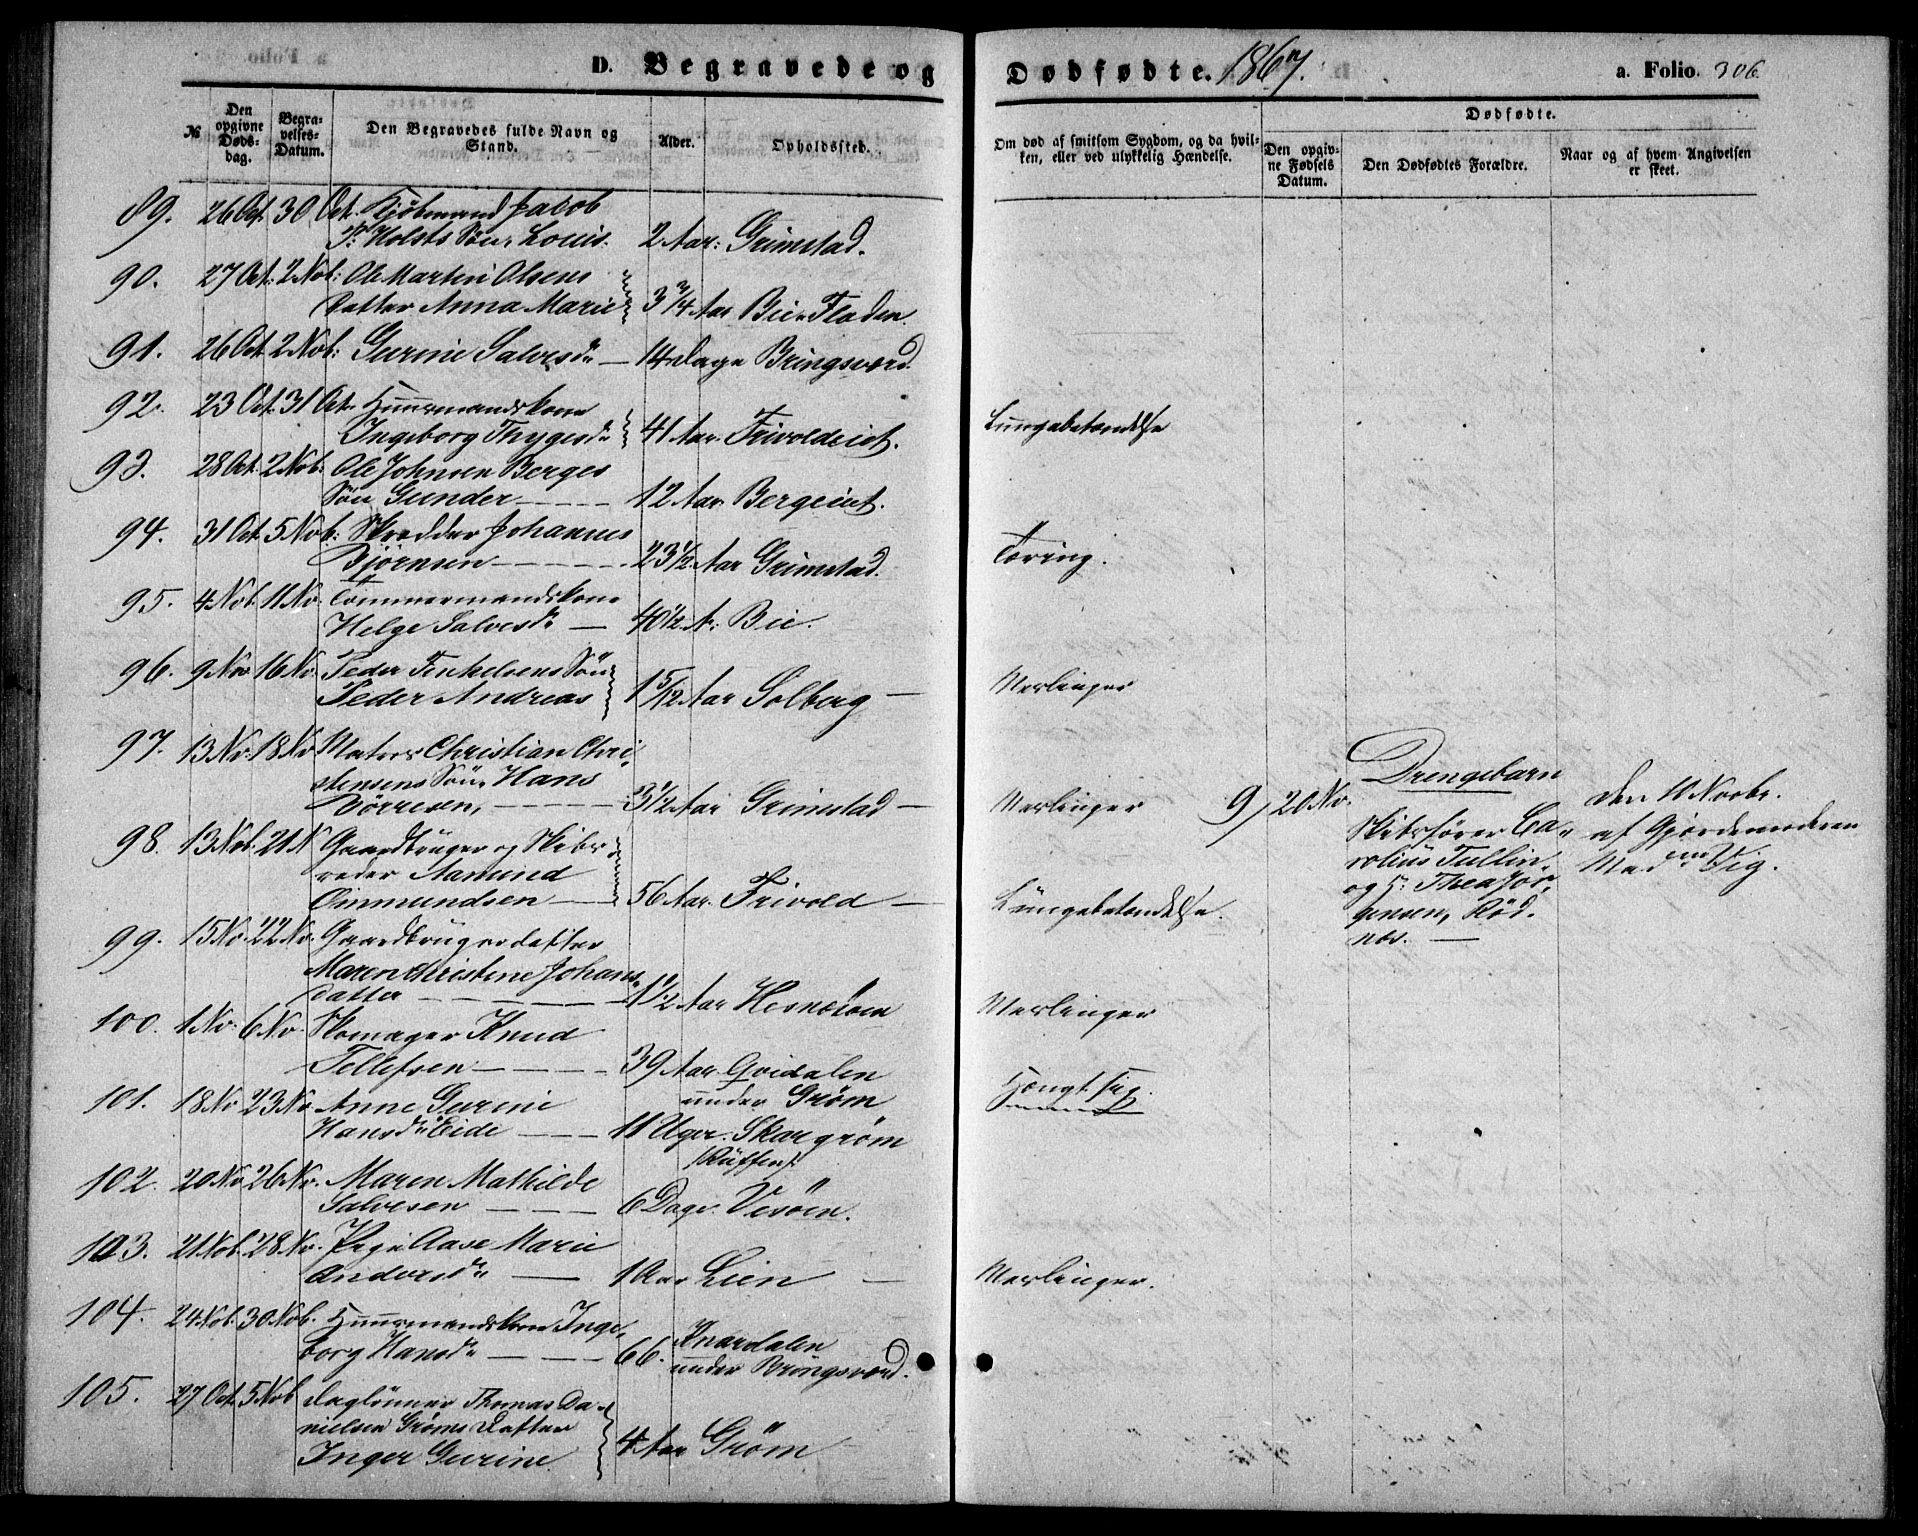 D. Begravede og Dødfødte. 1867. a. Folio. 306
№
Den opgivne Døds-dag.
Begra-velses-Datum.
Den Begravedes fulde Navn og Stand.
Alder.
Opholdssted.
Om død af smitsom Sygdom, og da hvil-
ken, eller ved ulykkelig Hændelse.
Dødfødte.
Den opgiv-
ne Fødsels
Datum.
Den Dødfødtes Forældre.
Naar og af hvem Angivelsen
er skeet.
89. 26 Oct. 30 Oct. Kjøbmand Jacob
P. Holsts Søn, Louis. 2 Aar: Grimstad.
90. 27 Oct. 2 Nob: Ole Martin Olsens
Datter Anna Marie 3 3/4 Aar Bie Fladen.
91. 26 Oct. 2 Nob: Gurine Salvesdr — 14 Dage Bringsværd.
92. 23 Oct. 31 Oct. Huusmandskone
Ingeborg Thygesdr 41 Aar. Frivoldeiet. Lungebetændelse
93. 28 Oct. 2 Nob: Ole Johnsen Berges
Søn Gunder — 12 Aar Bergeiet.
94. 31 Oct. 5 Nob: Skrædder Johannes
Bjørnsen — 23 1/2 Aar Grimstad. Tæring.
95. 4 Nob. 11 No. Tømmermandskone
Helge Salvesdr — 40 1/2 A: Bie.
96. 9 Nov 16 No. Peder Terkelsens Søn
Peder Andreas 1 5/12 Aar Solberg — Meslinger
97. 13 No. 18 No. Matros Christian Chri-
stensens Søn, Hans
Børresen, — 3 1/2 Aar Grimstad — Meslinger
9, 20 No.
Drengebarn
Skibsfører Ca-
rolius Tullin
og h: Thea Jør-
gensen, Rød.
Den 10 Novbr.
af Gjordemoderen
Mad. Vig.
98. 13 Nob. 21 N Gaardbruger og Skibs-
reder Aamund
Omundsen — 56 Aar. Frivold — Lungebetændelse.
99. 15 No. 22 No. Gaardbrugerdatter
Maren Christine Johans-
datter — 1 1/2 Aar Hesnesøen Meslinger
100. 1 No. 6 No. Skomager Knud
Tellefsen — 39 Aar Qvidalen
under Grøm Hængt sig.
101. 18 No 23 No Anne Gurine
Hansdr Eide — 11 Uger. Skargrøm
102. 20 No 26 No. Maren Mathilde
Salvesen — 6 Dage. Vesøen.
103. 21 Nob. 28 No. Pige Aase Marie
Andersdr — 1 Aar Lien — Meslinger.
104. 24 Nob. 30 Nob. Huusmandskone Inge-
borg Hansdr — 66. Knardalen
under Bringsværd.
105. 27 Oct. 5 Nob Daglønner Thomas Da-
nielsen Grøms Datter
Inger Gurine 4 Aar Grøm